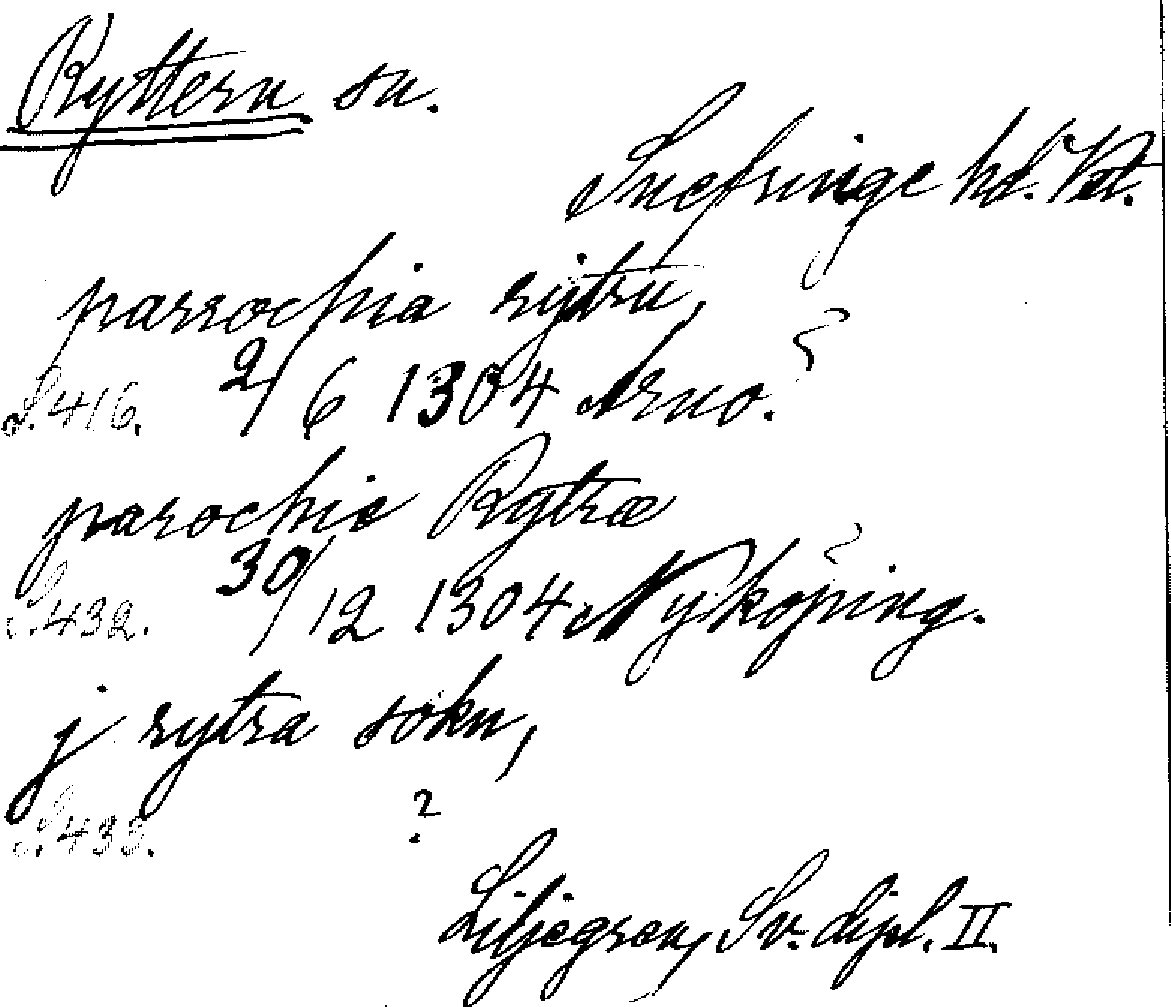 Ryttern sn.
Snefringe hd. Vstl.
parrochia rytru,
S. 416. 2/6 1304 Arno.
parochie Rytræ
S. 432. 30/12 1304 Nyköping.
j rytra sokn,
S. 433. ?
Liljegren, Sv. dipl. II.